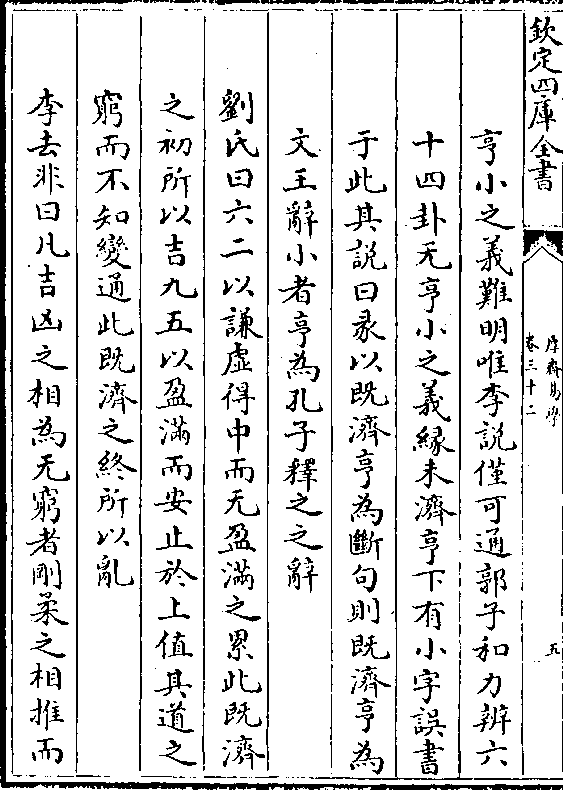 欽定四庫全書
厚齋易學
卷三十二
五
亨小之義難明唯李說僅可通郭子和力辨六
十四卦无亨小之義緣未濟亨下有小字誤書
于此其說曰彖以既濟亨為斷句則既濟亨為
文王辭小者亨為孔子釋之之辭
劉氏曰六二以謙虛得中而无盈滿之累此既濟
之初所以吉九五以盈滿而安止於上值其道之
窮而不知變通此既濟之終所以亂
李去非曰凡吉凶之相為无窮者剛柔之相推而